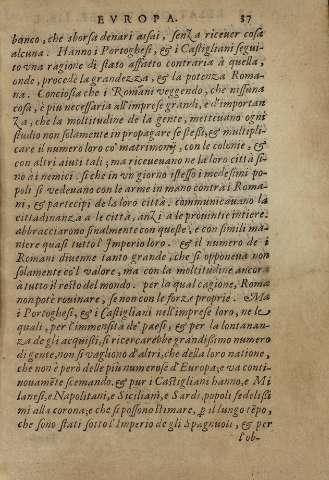 EVROPA. 37
banco, che sborsa denari assai, senza riceuer cosa
alcuna. Hanno i Portoghesi, & i Castigliani segui-
to vna ragione di stato affatto contraria à quella,
onde, procede la grandezza, & la potenza Roma-
na. Conciosia che i Romani veggendo, che nissuna
cosa, è più necessaria all'imprese grandi, e d'importan
za, che la moltitudine de la gente, mettiuano ogni
studio non solamente in propagare se stessi, & multipli-
care il numero loro co' matrimonij, con le colonie, &
con altri aiuti tali; ma riceueuano ne la loro città si-
no à i nemici. si che in vn giorno istesso i medesimi po-
poli si vedeuano con le arme in mano contra i Roma-
ni, & partecipi de la loro città. communicauano la
cittadinanza a le città, anzi a le prouintie intiere.
abbracciorono finalmente con queste, e con simili ma-
niere quasi tutto l'Imperio loro. & il numero de i
Romani diuenne tanto grande, che si opponeua non
solamente co'l valore, ma con la moltitudine ancora
à tutto il resto del mondo. per la qual cagione, Roma
non potè rouinare, se non con le forze proprie. Ma
i Portoghesi, & i Castigliani nell'imprese loro, ne le
quali, per l'immensità de' paesi, & per la lontanan-
za de gli acquisti, si ricercarebbe grandissimo numero
di gente, non si vagliono d'altri, che della loro natione,
che non è però delle più numerose d'Europa; e va conti-
nouamēte scemando. & pur i Castigliani hanno, e Mi
lanesi, e Napolitani, e Siciliani, e Sardi, popoli fedelissi
mi alla corona; e che si possono stimare, p il lungo tēpo,
che sono stati sotto l'Imperio de gli Spagnuoli, & per
l'ob-